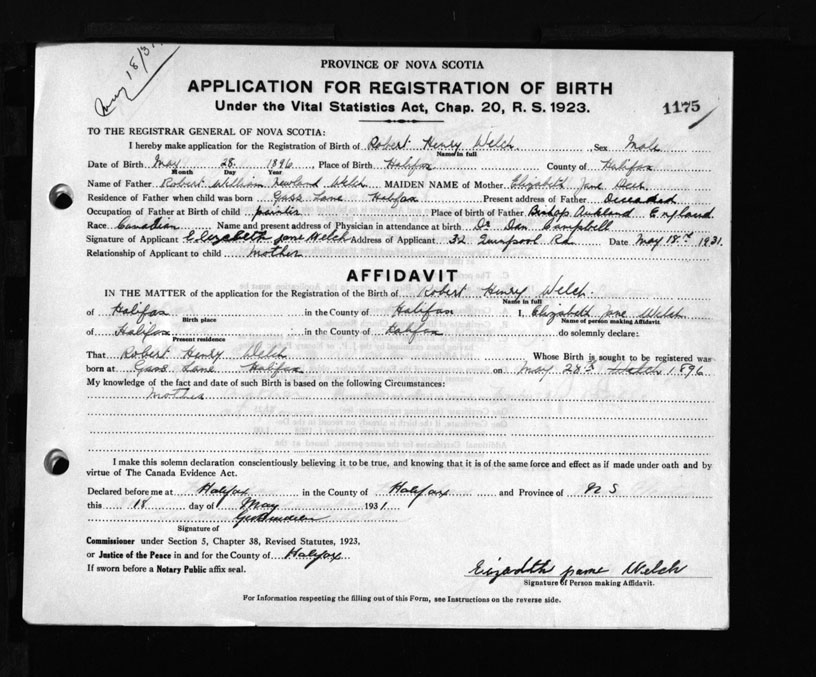 May 18/31
PROVINCE OF NOVA SCOTIA
APPLICATION FOR REGISTRATION OF BIRTH
Under the Vital Statistics Act, Chap. 20, R. S. 1923.
1175
TO THE REGISTRAR GENERAL OF NOVA SCOTIA:
I hereby make application for the Registration of Birth of Robert Henry Welch Sex Male
Name in full
Date of Birth May 28 1896 Place of Birth Halifax County of Halifax
Month Day Year
Name of Father Robert William Newland Welch MAIDEN NAME of Mother Elizabeth Jane
Residence of Father when child was born Gass Lane Halifax Present address of Father Deceased
Occupation of Father at Birth of child painter Place of birth of Father Bishop Aukland England
Race Canadian Name and present address of Physician in attendance at birth Dr Dan Campbell
Signature of Applicant Elizabeth Jane Welch Address of Applicant 32 Quinpool Rd Date May 18th 1931.
Relationship of Applicant to child mother
AFFIDAVIT
IN THE MATTER of the application for the Registration of the Birth of Robert Henry Welch
Name in full
of Halifax in the County of Halifax I, Elizabeth Jane Welch
Birth place Name of person making Affidavit.
of Halifax in the County of Halifax do solemnly declare:
Present residence
That Robert Henry Welch Whose Birth is sought to be registered was
born at Gass Lane Halifax on May 28th Welch 1896
My knowledge of the fact and date of such Birth is based on the following Circumstances:
Mother
I make this solemn declaration conscientiously believing it to be true, and knowing that it is of the same force and effect as if made under oath and by
virtue of The Canada Evidence Act.
Declared before me at Halifax in the County of Halifax and Province of N S
this 18 day of May 1931
Signature of
Commissioner under Section 5, Chapter 38, Revised Statutes, 1923,
or Justice of the Peace in and for the County of Halifax
If sworn before a Notary Public affix seal.
Elizabeth Jane Welch
Signature of Person making Affidavit.
For Information respecting the filling out of this Form, see Instructions on the reverse side.